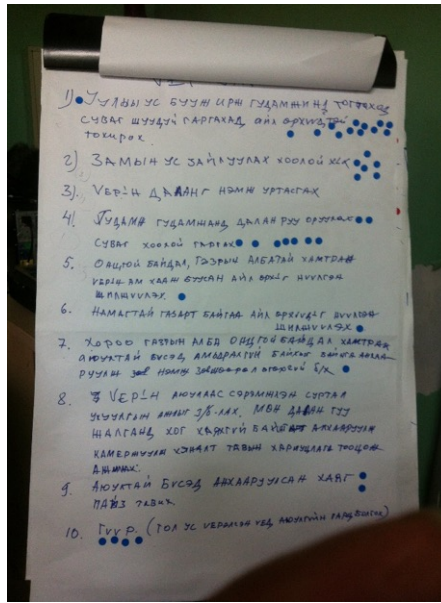 1) Уулын ус бууж ирж гудамжинд тогтоход
суваг шуудуй гаргахад айл өрхүүдтэй
тохирох
2) Замын ус зайлуулах хоолой хийх
3). Үерийн даланг нэмж уртасгах
4) Гудамж гудамжанд далан руу оруулах
суваг хоолой гаргах
5. Онцгой байдал, газрын албатай хамтран
үерийн ам хааж буусан айл өрхийг нүүлгэн
шилжүүлэх.
6. Намагтай газарт байгаа айл өрхүүдийг нүүлгэн
шилжүүлэх
7. Хороо газрын алба онцгой байдал хамтран
аюултай бүсэд амьдрахгүй байхыг
нэмж б/х
8. 3 Үерийн аюулаас сэрэмжлэн суртал
ухуулгын ажлыг з/б-лах. Мөн далан гуу
жалганд хог хаяхгүй анхааруулан
камержуулж хяналт тавьж хариуцлага тооцож
ажиллах.
9. Аюултай бүсэд анхааруулсан хаяг
тавих
10. Гүүр. (гол ус үерлэсэн үед аюулгүй гарц болгох)